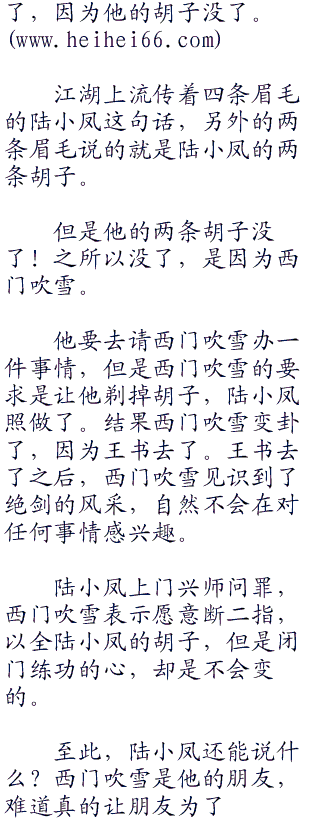 了，因为他的胡子没了。
(www.heihei66.com)
江湖上流传着四条眉毛
的陆小凤这句话，另外的两
条眉毛说的就是陆小凤的两
条胡子。
但是他的两条胡子没
了！之所以没了，是因为西
门吹雪。
他要去请西门吹雪办一
件事情，但是西门吹雪的要
求是让他剃掉胡子，陆小凤
照做了。结果西门吹雪变卦
了，因为王书去了。王书去
了之后，西门吹雪见识到了
绝剑的风采，自然不会在对
任何事情感兴趣。
陆小凤上门兴师问罪，
西门吹雪表示愿意断二指，
以全陆小凤的胡子，但是闭
门练功的心，却是不会变
的。
至此，陆小凤还能说什
么？西门吹雪是他的朋友，
难道真的让朋友为了